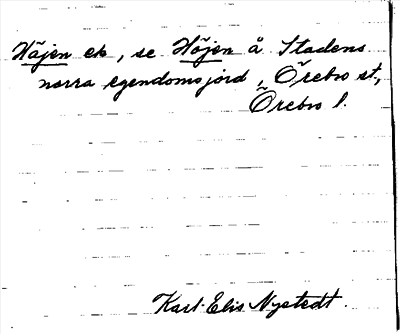 Häjen etc, se Höjen å Stadens
norra egendomsjord, Örebro st,
Örebro l.
Karl-Elis Nystedt.